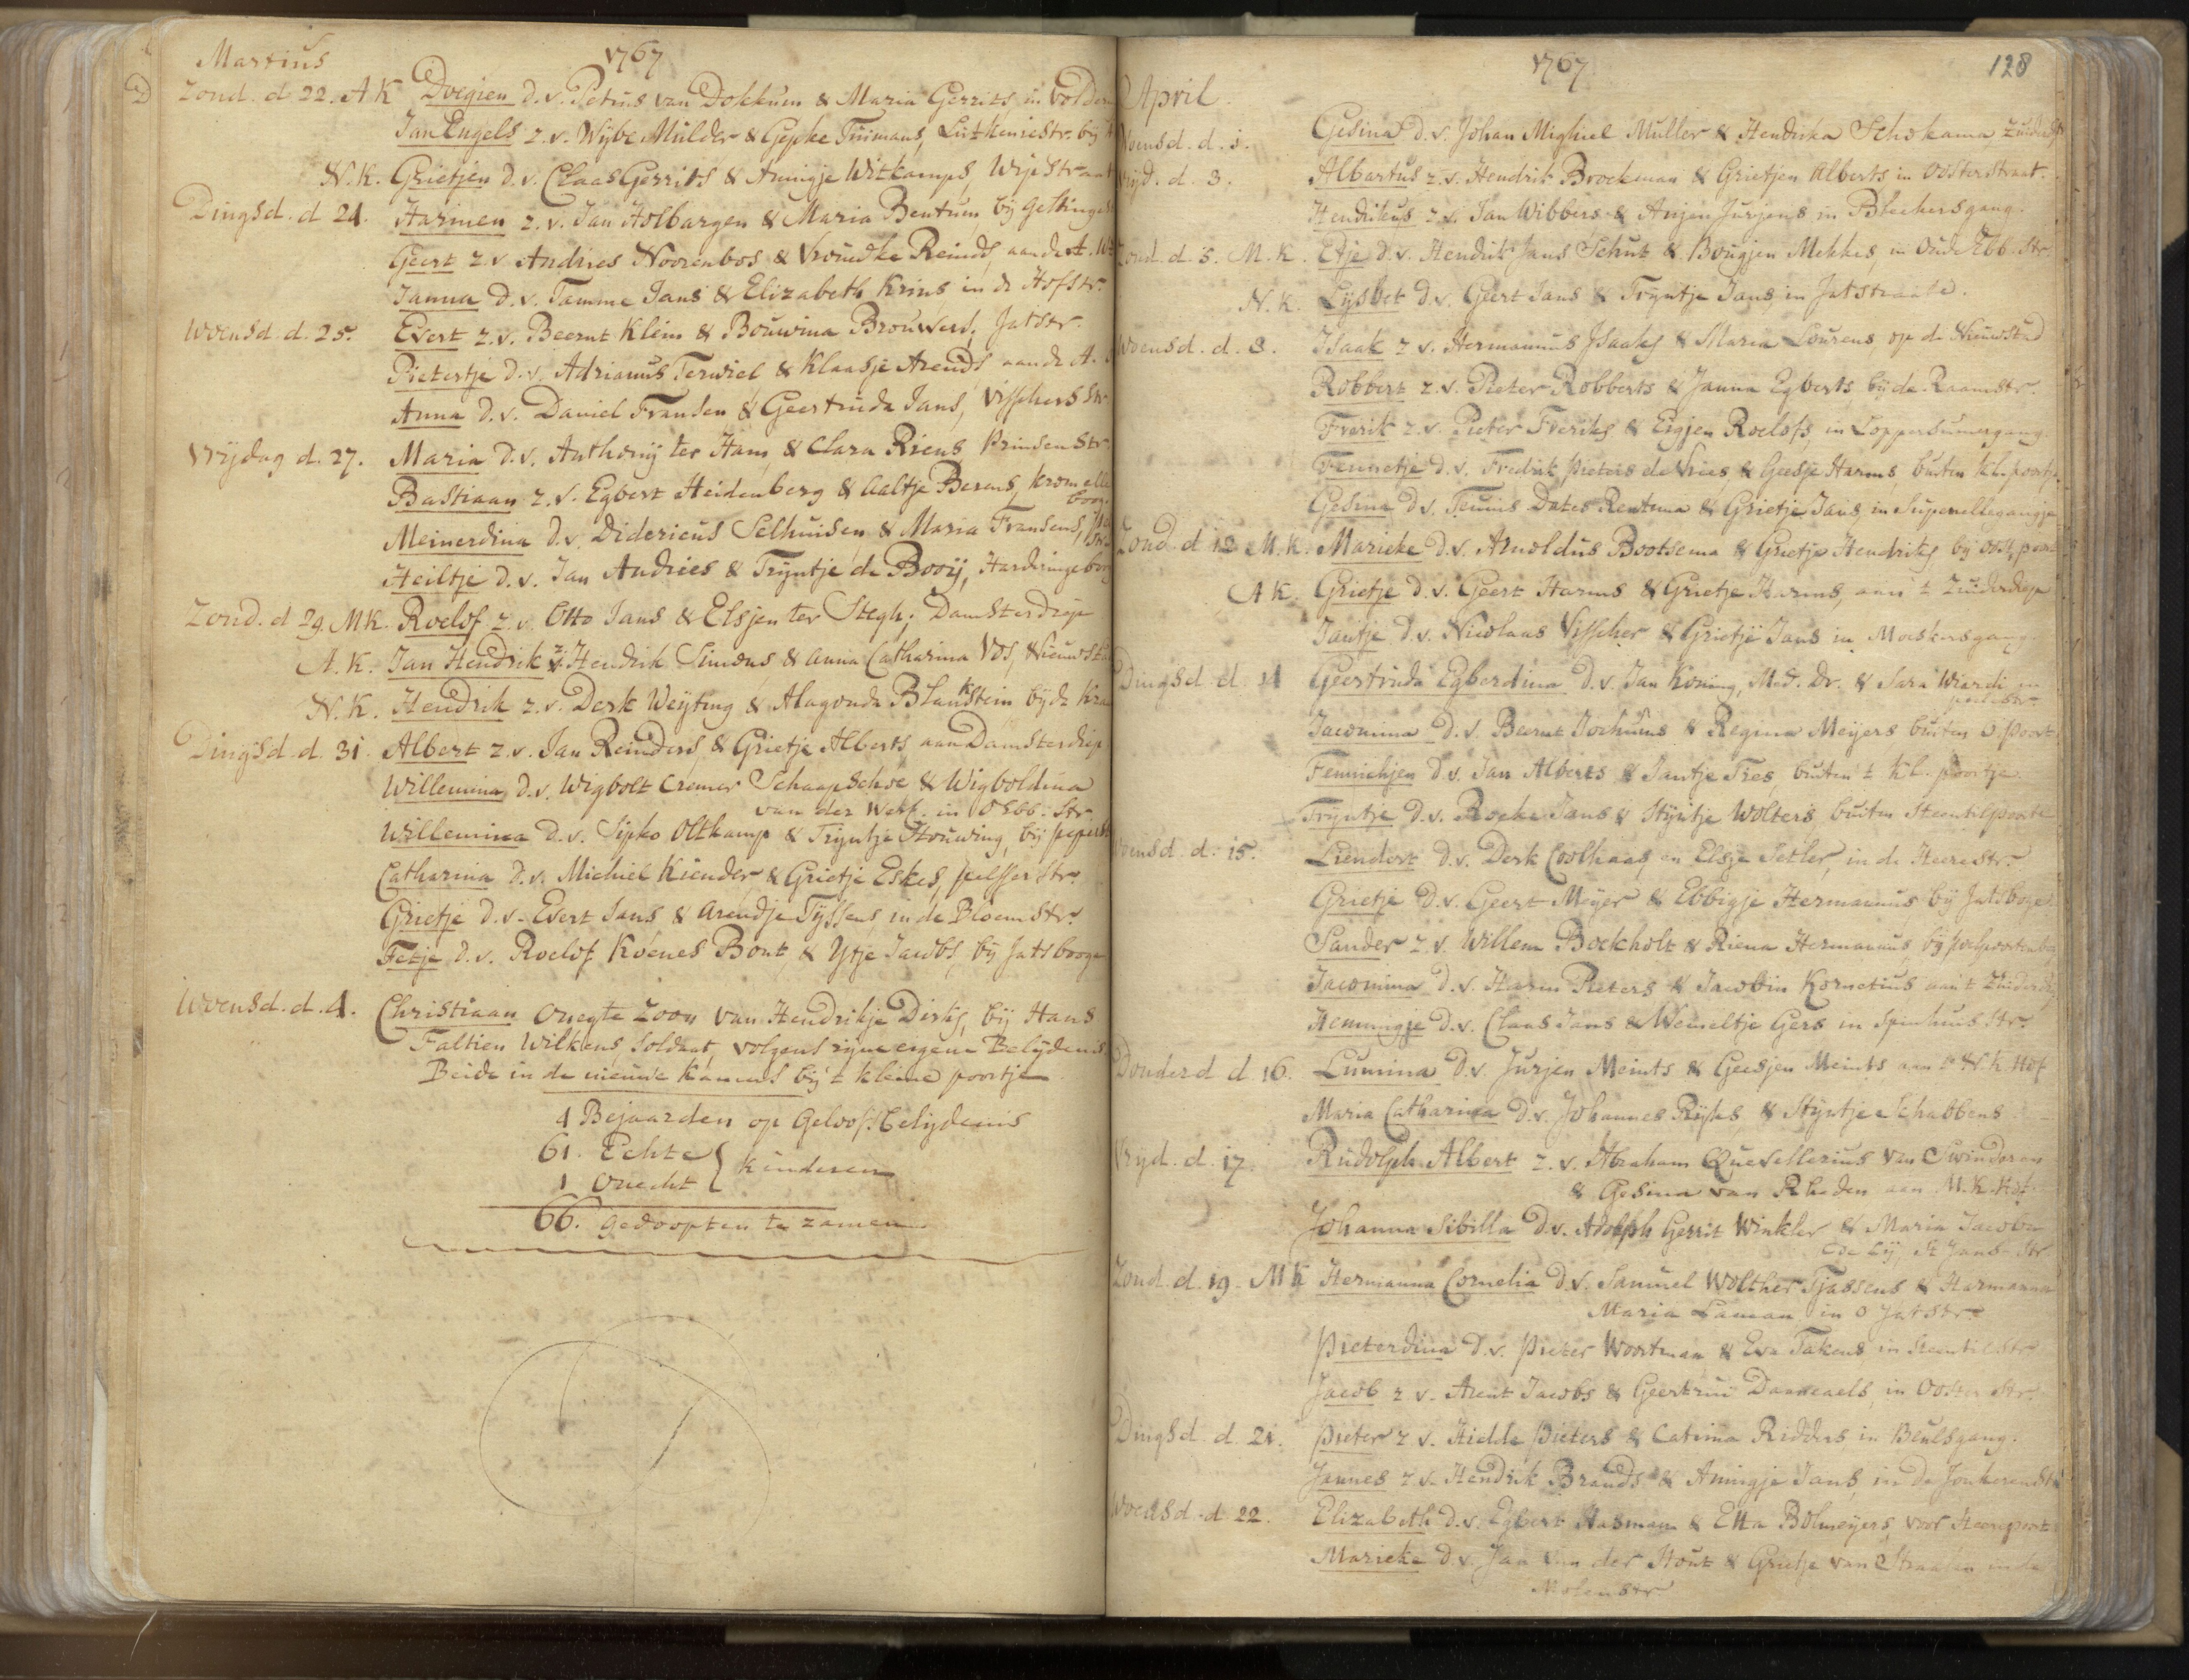 Martius 1767
Zond. d 22. A K Dvegien d. v. Petrus van Dokkum & Maria Gerrits, in volder
Jan Engels z. v. Wijbe Mulder & Gepke Tuimans, Lutkeniestr. bij
N. K. Grietjen d. v. Claas Gerrits & Annigje Witkamps, Wipstraat
Dingsd. d 24. Harmen z. v. Jan Holbargen & Maria Bentum, bij Gelkinge
Geert z. v. Andries Noorenbos & Vrouwke Reinds, aan de A.
Janna D. v. Tamme Jans & Elizabeth Krins in de Hofstr.
Woensd. d. 25. Evert z. v. Beernt Klein & Bouwina Brouwers, Jatstr.
Pietertje D. v. Adrianus Terwiel & Klaasje Arends aan de A.
Anna D. v. Daniel Fransen & Geertruda Jans, Visschersstr
Vrijdag d. 27. Maria D. v. Anthonij ter Ham, & Clara Riens Prinsenstr
Bastiaan z. v. Egbert Heidenberg & Aaltje Berens, kromelle
boog.
Meinerdina d. v. Didericus Selhuisen, & Maria Fransens,
Heiltje d. v. Jan Andries & Trijntje de Booij, Harderingeboog
Zond. d 29. MK. Roelof z. v. Otto Jans & Elsjen ter Stegh; Damsterdiep
A. K. Jan Hendrik z. v. Hendrik Simons & Anna Catharina Vos, Nieuwst
N. K. Hendrik z. v. Derk Weijting & Alagonda Blankstein bij de kra
Dingsd. d. 31. Albert z. v. Jan Reinders, & Grietje Alberts, aan Damsterdiep
Willemina, D. v. Wigbolt Cremer Schaapschoe & Wigboldina
van der Werf. in O Ebb. Str.
Willemina D. v. Sipko Oltkamp & Trijntje Stouwing, bij peperst
Catharina D. v. Michiel Kiender & Grietje Eskes, pelsserstr.
Grietje D. v. Evert Jans & Arendje Tijssens, in de Bloemstr.
Fetje D. v. Roelof Koenes Bont, & Ytje Jacobs, bij Jatsboog
Woensd. d. 4. Christiaan Onegte Zoon van Hendrikje Dirks, bij Hans
Faltien Wilkens, Soldaat, volgens zijne eigene Belijdenis
Beide in de nieuwe Kamers bij 't kleine poortje
4 Bejaarden op Geloofs belijdenis
61. Echte
1 Onecht } kinderen
66. gedoopten te zamen
1767 128
April
Woensd. d. 1. Gesina D. v. Johan Mighiel Muller & Hendrika Schokama
Vrijd. d. 3. Albartus z. v. Hendrik Broekman & Grietjen Alberts in Oosterstraat.
Hendrikus z. v. Jan Wibbers & Anjen Jurjens in Bleekersgang.
Zond. d. 5. M. K. Etje D. v. Hendrik Jans Schut & Bougjen Mekkes, in Oude Ebb. Str.
N. K. Lijsbet D. v. Geert Jans & Trijntje Jans, in Jatstraate.
Woensd. d. 8. Isaak z. v. Hermannus Isaaks & Maria Lourens op de Nieuwstad
Robbert z. v. Pieter Robberts & Janna Egberts, bij de Raamstr.
Frerik z. v. Pieter Freriks & Eigjen Roelofs, in Loppersumergang
Fennetje D. v. Fredrik Pieters de Vries, & Geesje Harms, buiten kl. poortje
Gesina D. v. Teunis Dates Rentema & Grietje Jans in Supenellegangje
Zond. d 12 M. K. Marieke D. v. Arnoldus Bootsema & Grietje Hendriks, bij oost. poort
A K. Grietje D. v. Geert Harms & Grietje Harms, aan 't Zuiderdiep
Jantje D. v. Nicolaas Visscher & Grietje Jans in Moeskersgang
Dingsd. d. 14 Geertruda Egberdina D. v. Jan Koning, Med. Dr. & Sara Wiardi in
peperstr.
Jacomina D. v. Beernt Jochums & Regina Meijers buiten O. poort
Fennichjen D. v. Jan Alberts & Jantje Fres, buiten 't kl. poortje
Trijntje D. v. Rocke Jans & Stijntje Wolters, buiten Steentilpoorte
Woensd. d. 15. Liendert D. v. Derk Coolhaas, en Elsje Setler, in de Heerestr.
Grietje D. v. Geert Meijer & Ebbigje Hermannus bij Jatsboge
Sander z. v. Willem Bockholt & Riena Hermannus, bij poelpoortenboog
Jacomina D. v. Harm Pieters & Jacobin Kornetius aan 't Zuiderdiep
Hemmigje D. v. Claas Jans & Wemeltje Gers in Spinhuisstr.
Donderd d. 16. Lumina D. v. Jurjen Meints & Geesjen Meints aan 't N. K. Hof
Maria Catharina D. v. Johannes Rijks, & Stijntje Schabbens
Vrijd. d. 17. Rudolph Albert z. v. Abraham Quevellerius Van Swinderen
& Gesina van Rheden aan M. K. Hof
Johanna Sibilla D. v. Adolph Gerrit Winkler & Maria Jacoba
de Lij, St Jans Str
Zond. d. 19. MK Hermanna Cornelia D. v. Samuel Wolther Tjassens & Harmanna
Maria Laman in O Jatstr.
Pieterdina D. v. Pieter Woortman & Eva Takens in Steentilstr
Jacob z. v. Arent Jacobs & Geertrui Danneaels, in Ooster Str.
Dingsd. d. 21. Pieter z. v. Hidde Pieters & Catrina Ridders in Beulsgang.
Jannes z. v. Hendrik Brands & Annigje Jans, in de Jonkerenstr
Woensd. d. 22. Elizabeth D. v. Egbert Hasman & Etta Bolmeijers, voor Heerepoort
Marieke D. v. Jan van der Hout & Grietje van Straaten in de
Molenstr